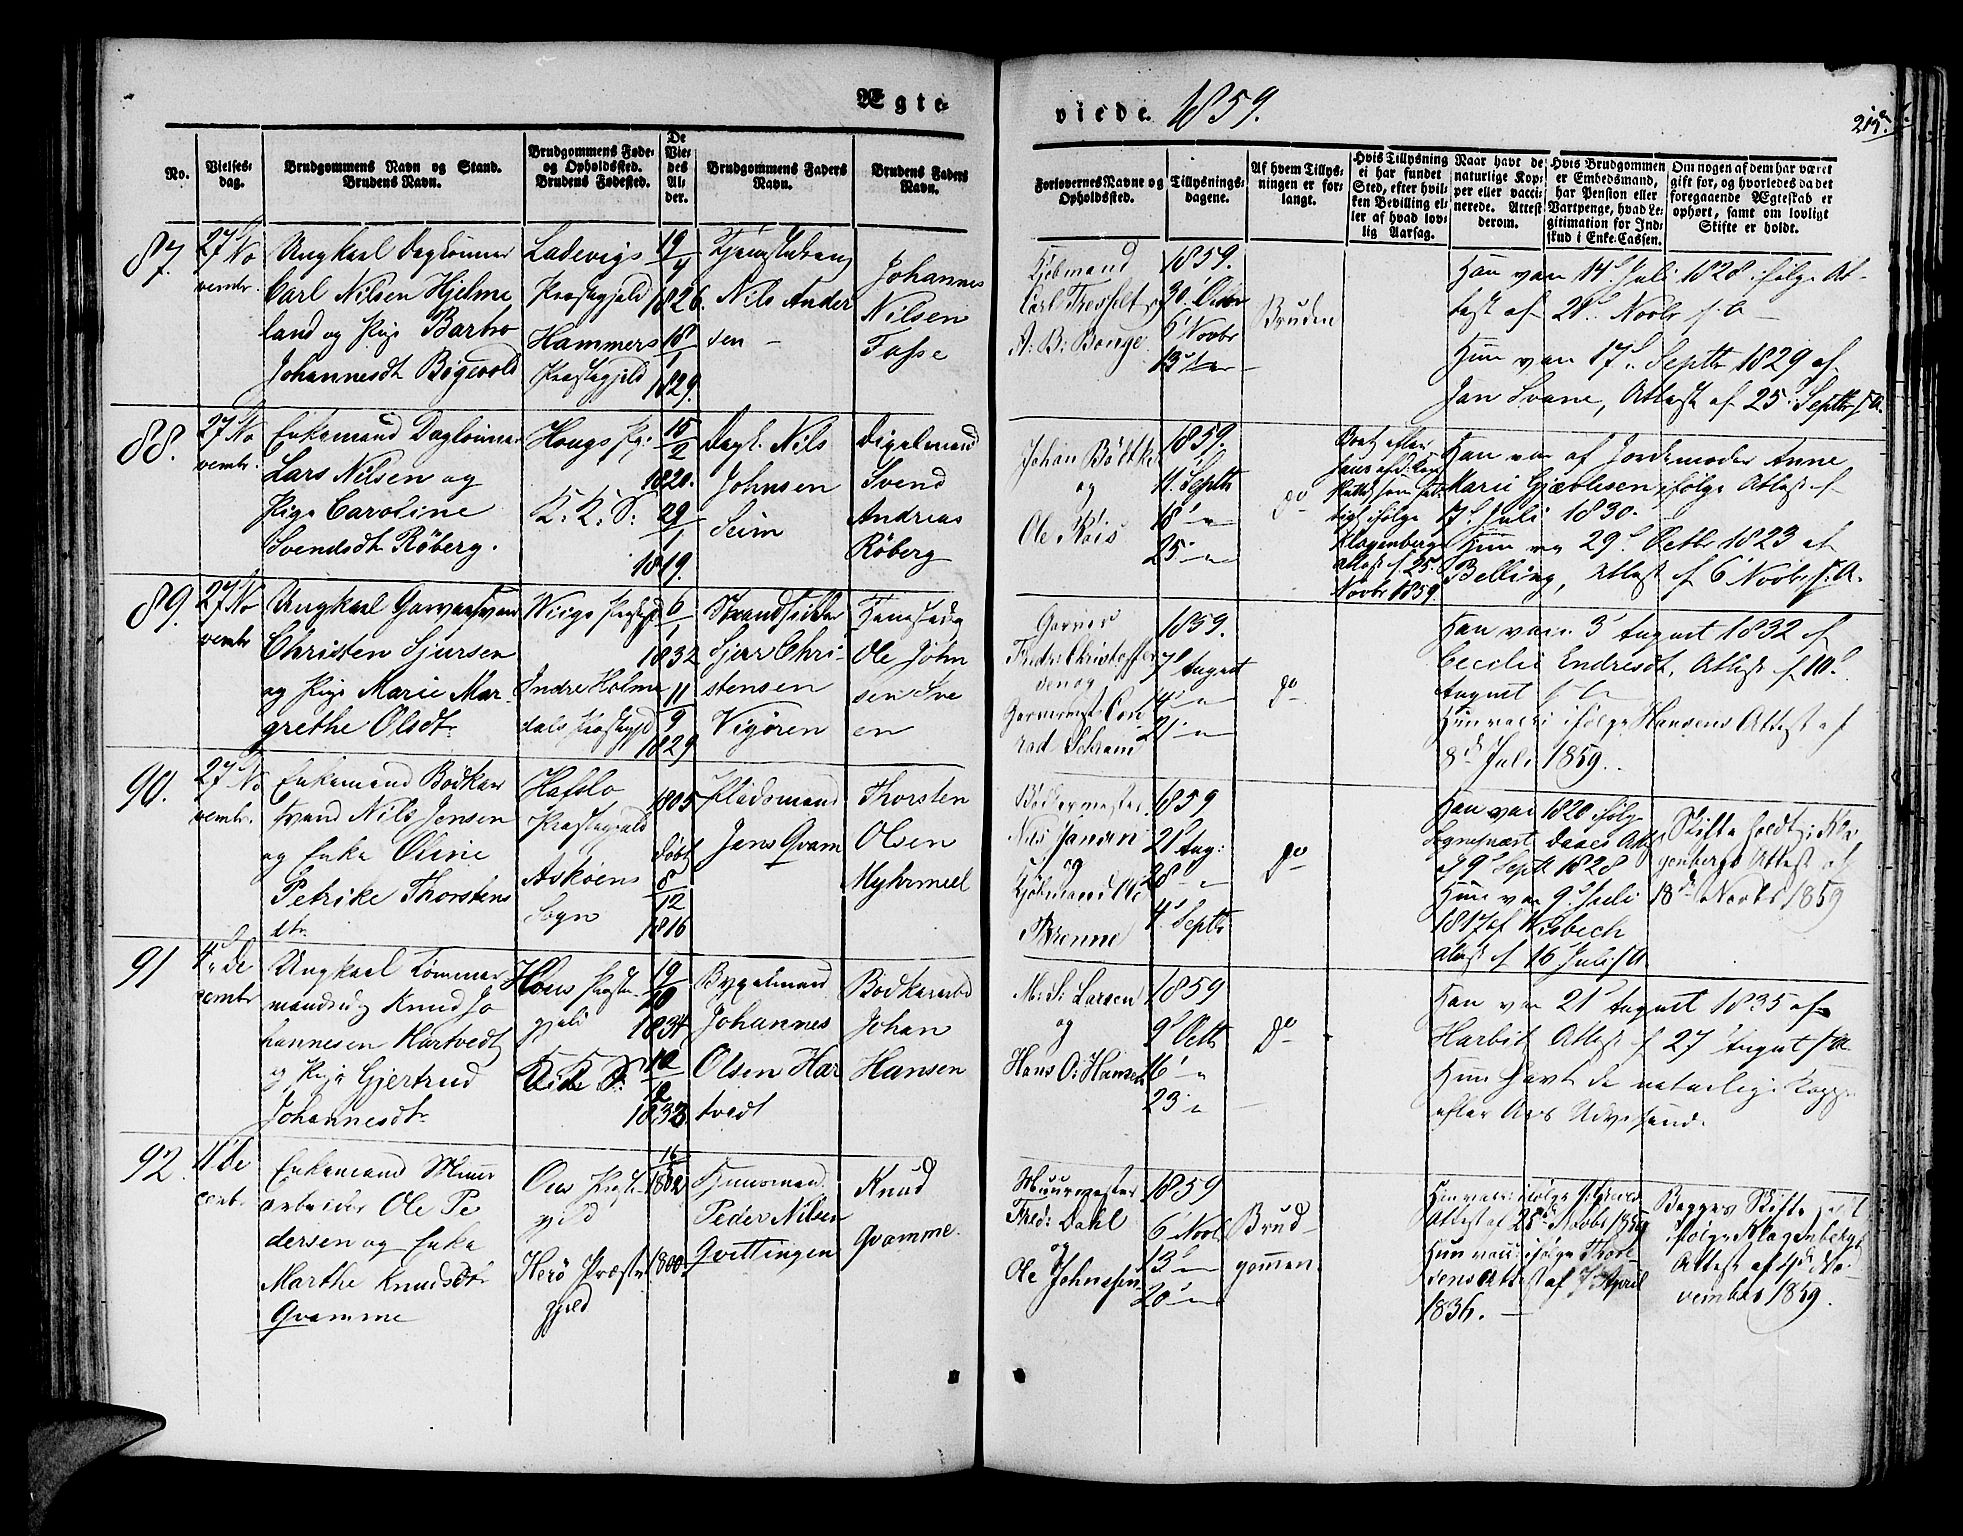 Ægte
viede 1859.
No.
Vielses-
dag.
Brudgommens Navn og Stand.
Brudens Navn.
Brudgommens Føde-
og Opholdssted.
Brudens Fødested.
De
Vie-
des
Al-
der.
Brudgommens Faders
Navn.
Brudens Faders
Navn.
Forlovernes Navne og
Opholdssted.
Tillysnings-
dagene.
Af hvem Tillys-
ningen er for-
langt.
Hvis Tillysning
ei har fundet
Sted, efter hvil-
ken Bevilling el-
ler af hvad lov-
lig Aarsag.
Naar havt de
naturlige Kop-
per eller vacci-
nerede. Attest
derom.
Hvis Brudgommen
er Embedsmand,
har Pension eller
Vartpenge, hvad Le-
gitimation for Ind-
skud i Enke-Cassen.
Om nogen af dem har været
gift før, og hvorledes da det
foregaaende Ægteskab er
ophørt, samt om lovligt
Skifte er holdt.
87.
27 No
vembr.
Ungkarl Dagleiner
Carl Nilsen Hjelme
land og Pige Barbro
Johannesdt Bøgevold
Ladevigs
Præstegjeld
Hammers
Præstegjeld
19/4
1826.
18/1
1829.
Nils Ander
sen
Johannes
Nilsen
Fosse
Kjøbmand
A. B. Bange
1859.
30 Octbr
6 Novbr
13
Bruden
Han vac. 14d Juli 1828 ifølge At-
test af 21d Novbr s. A.
Hun vac. 17d Septbr 1829 af
Jan Svane, Attest af 25 Septbr s. A.
88.
27 No
vembr.
Enkemand Dagleiner
Lars Nilsen og
Pige Caroline
Svendsdt Røberg.
Hougs Pg:
K. K. S.
15/2
1820.
29/1
1819.
Dagl. Nils
Johnsen
Seim
Svend
Andreas
Røberg
Johan Bøttker
og
Ole Rois
1859.
11 Septbr
18
25
do
Klagenbergs
Attest af 25
Novbr 1859.
Han vac af Jordemoder Anne
Marie Gjæblesen, ifølge Attest af
17d Juli 1830.
Hun vac 29d Octbr 1823 af
Belling, Attest af 6 Novbr s. A.
89.
27 No
vembr
Ungkarl Garversvend
Christen Sjursen
og Pige Marie Mar-
grethe Olsdt.
Viigs Præstegjeld
Indre Holme
dals Præstegjeld
6/1
1832
11/9
1829
Strandsidder
Sjur Chri-
stensen
Vigøren
Ole John
sen Sve
en
Garver
Fredr. Christoffer
sen og
Garvermest. Con
rad Schram
1859.
7 August
14
21
do
Han vacc. 3 August 1832 af
Cecilie Endresdt, Attest af 10d
August s. A.
Hun vacc. ifølge Hansens Attest af
8d Juli 1859.
90.
27 No
vembr.
Enkemand Bødker
svend Nils Jensen
og Enke Oline
Petrike Thorstens
dtr.
Hafslo
Præstegjeld
Askøens
Sogn
1805
døbt
8/12
1816
Pladsmand
Jens Qvam
Thorsten
Olsen
Myhrmeel
Bødkermester
Nils Jansen
og
Kjøbmand
Brenne
1859
21 Aug:
28
4 Septbr
do
Han vac 1820 ifølge
Sognepræst Daaes Att
af 9d Septbr 1828
Hun vac 9d Juli
1817 af Wisbech
Attest af 16 Juli s. A.
Skifte holdt i Kla-
genbergs Attest af
18d Novbr 1859
91
4 de
cembr
Ungkarl Tømmer
mandsvd Knud Jo
hannesen Hartvedt
og Pige Gjertrud
Johannesdtr.
Hous Præste-
gjeld
K. K. S.
19/10
1834
12/12
1833
Bygdemand
Johannes
Olsen Har
tvedt
Bødkerarbd
Johan
Hansen
M. S. Larsen
og
Hans O. Hansen
1859
9 Octbr
16
23
do
Han vac 21 August 1835 af
Harbitz Attest af 27 August s. A.
Hun havt de naturlige Kopper
efter Ars Udvisende.
92.
4 de
cembr.
Enkemand Muur
arbeider Ole Pe
dersen og Enke
Marthe Knudsdtr
Qvamme
Ous Præste-
gjeld
Herø Præste
gjeld
1802
1800.
Huusmand
Peder Nilsen
Qvittingen
Knud
Qvamme.
Muurmester
Fred: Dahl
og
Ole Johnssen
1859
6 Novbr
13
20
Brud-
gommen.
Attest af 25d Novbr 1859
Hun vacc. ifølge Thore
sens Attest af 7 April
1836.
Begges Skifte holdt
ifølge Klagenbergs
Attest af 4de No-
vember 1859.